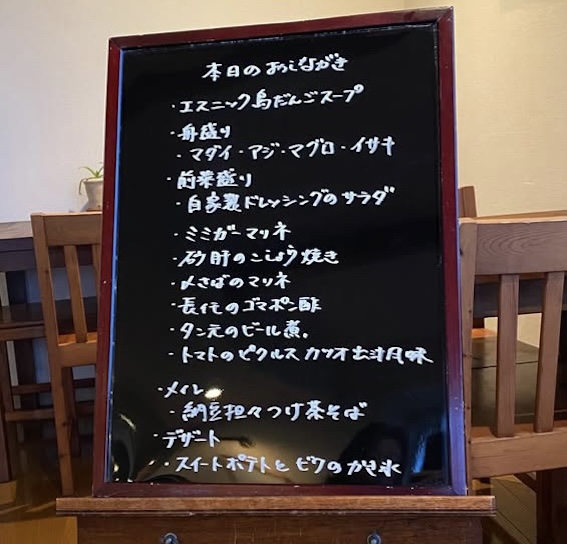 本日のおしながき
・エスニック鳥だんごスープ
・舟盛り
・マダイ・アジ・マグロ・イサキ
・前菜盛り
・自家製ドレッシングのサラダ
・ミミガーマリネ
・砂肝のこしょう焼き
・〆さばのマリネ
・長イモのゴマポン酢
・タン元のビール煮。
・トマトのピクルス カツオ出汁風味
・メイン
・納豆担々つけ茶そば
・デザート
・スイートポテトと ビワのかき氷